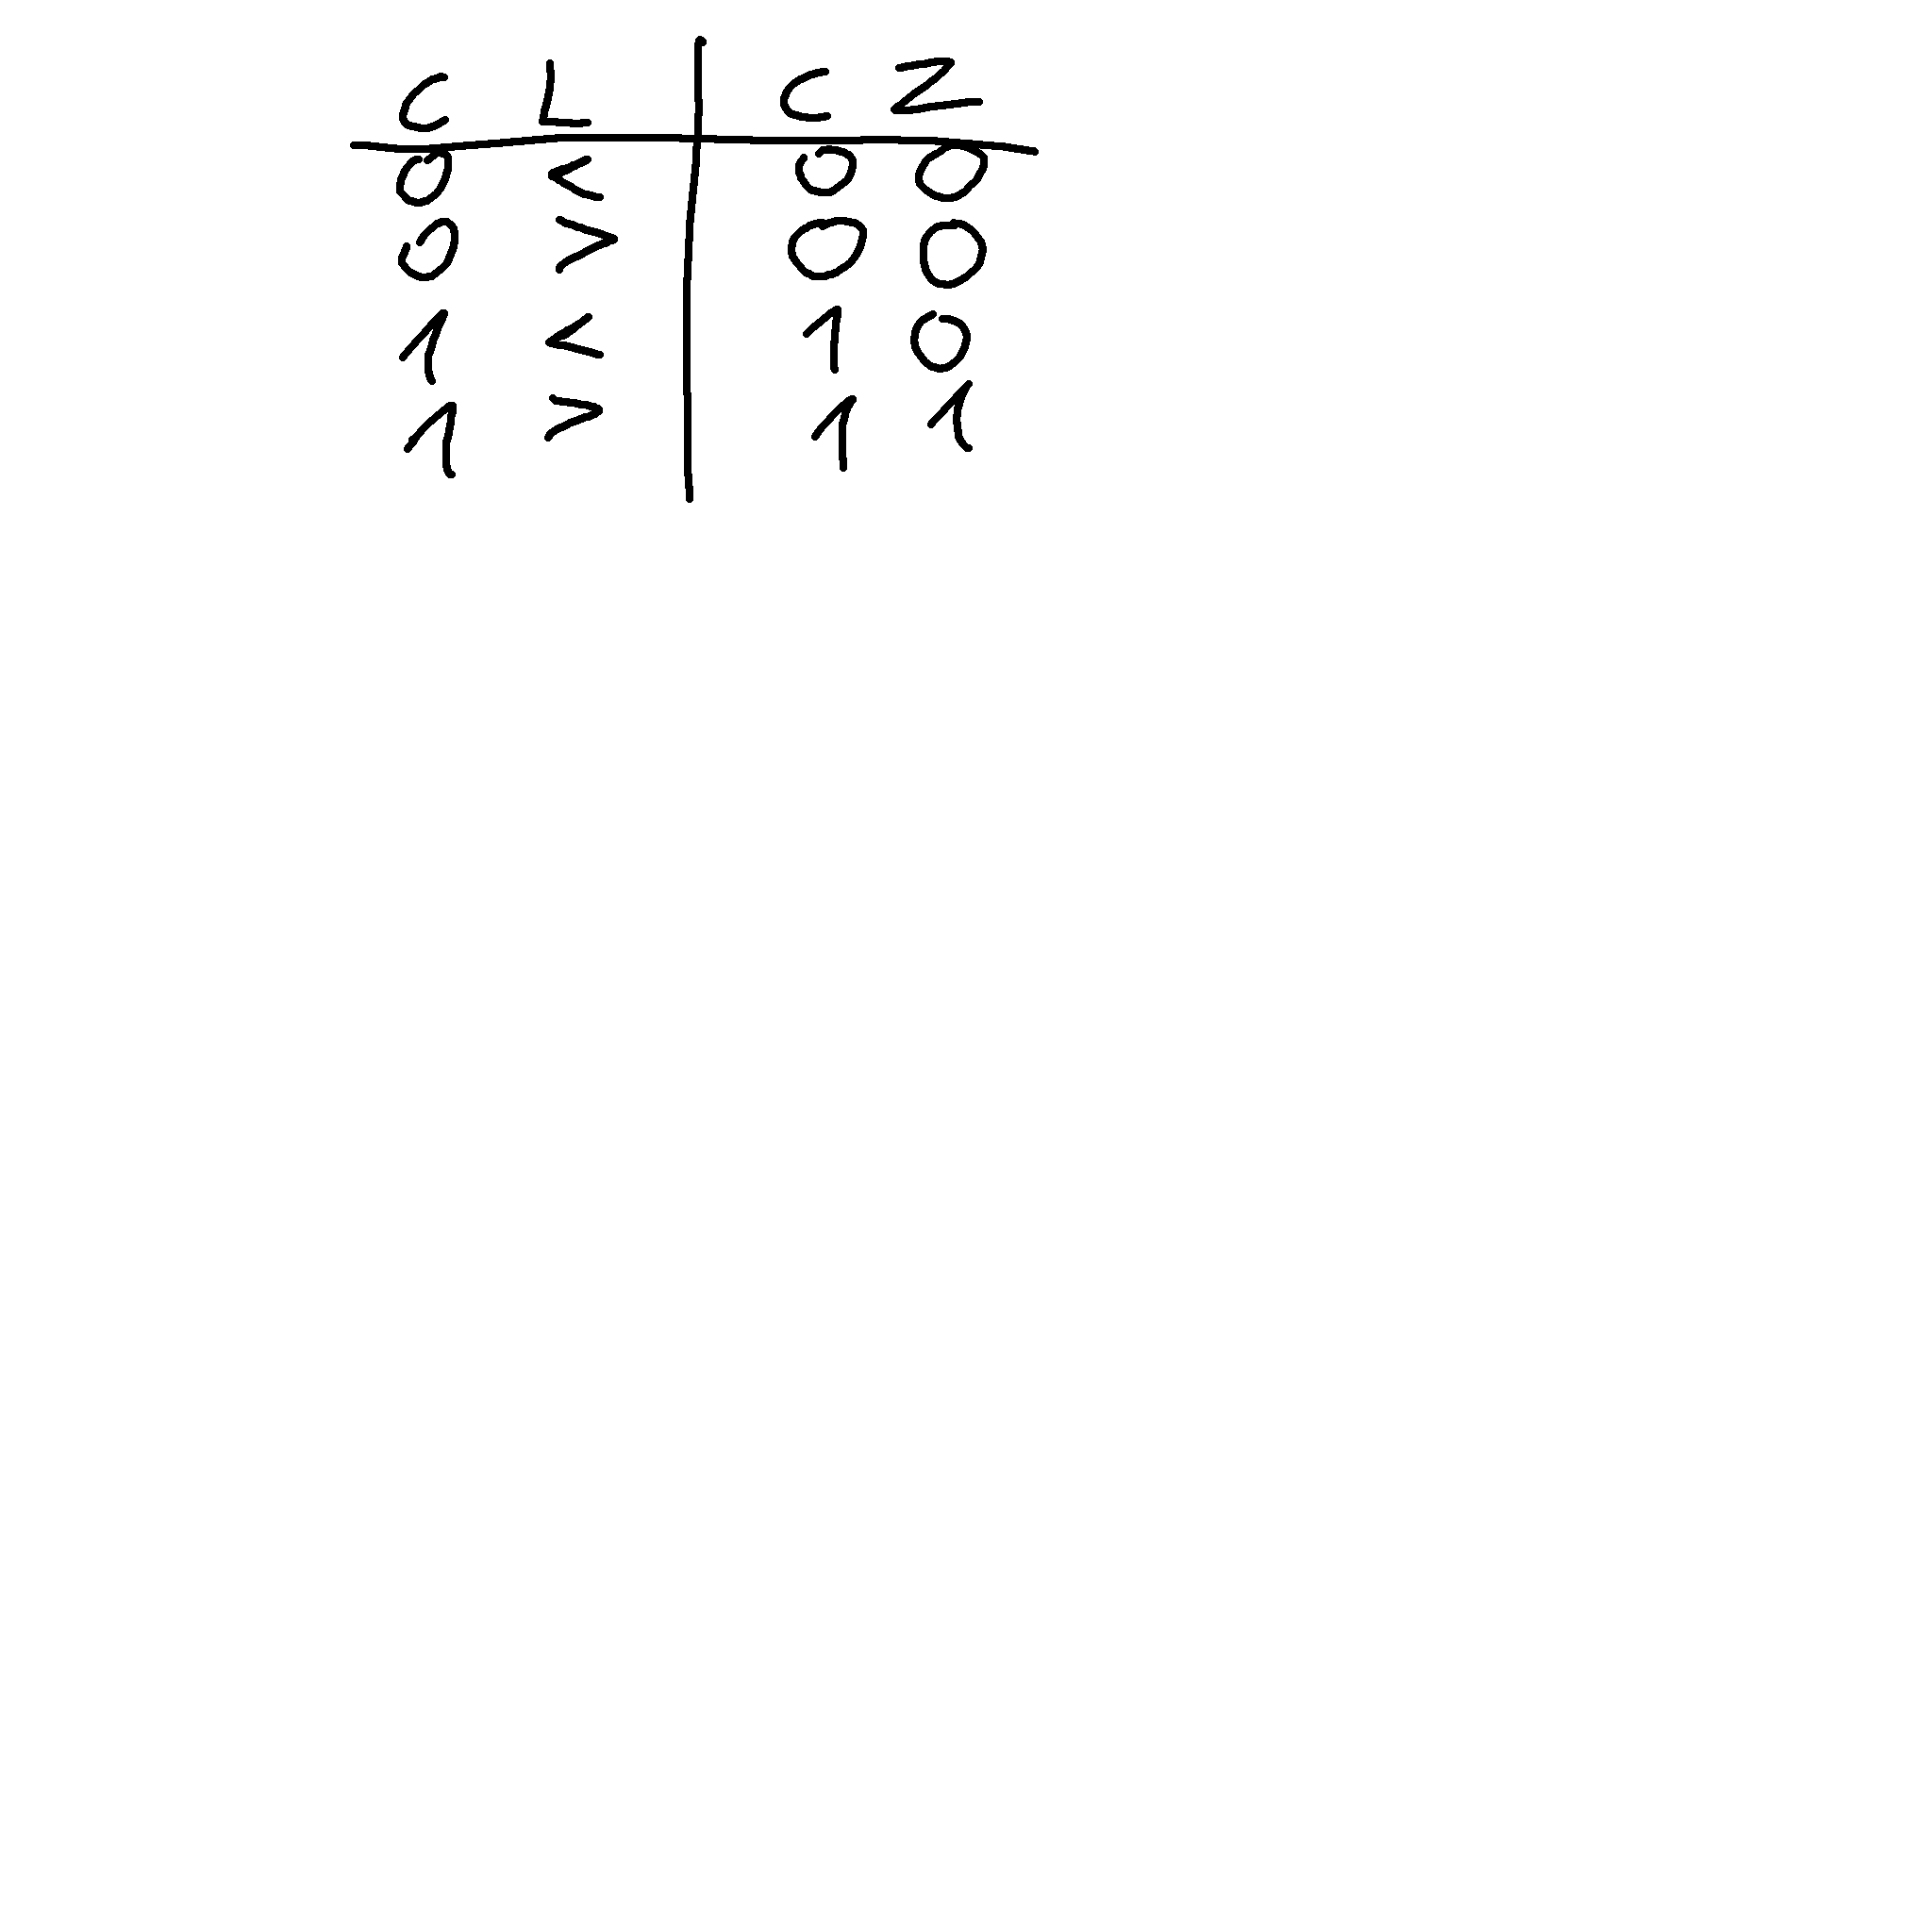 C L | C Z
0 < | 0 0
0 > | 0 0
1 < | 1 0
1 > | 1 1